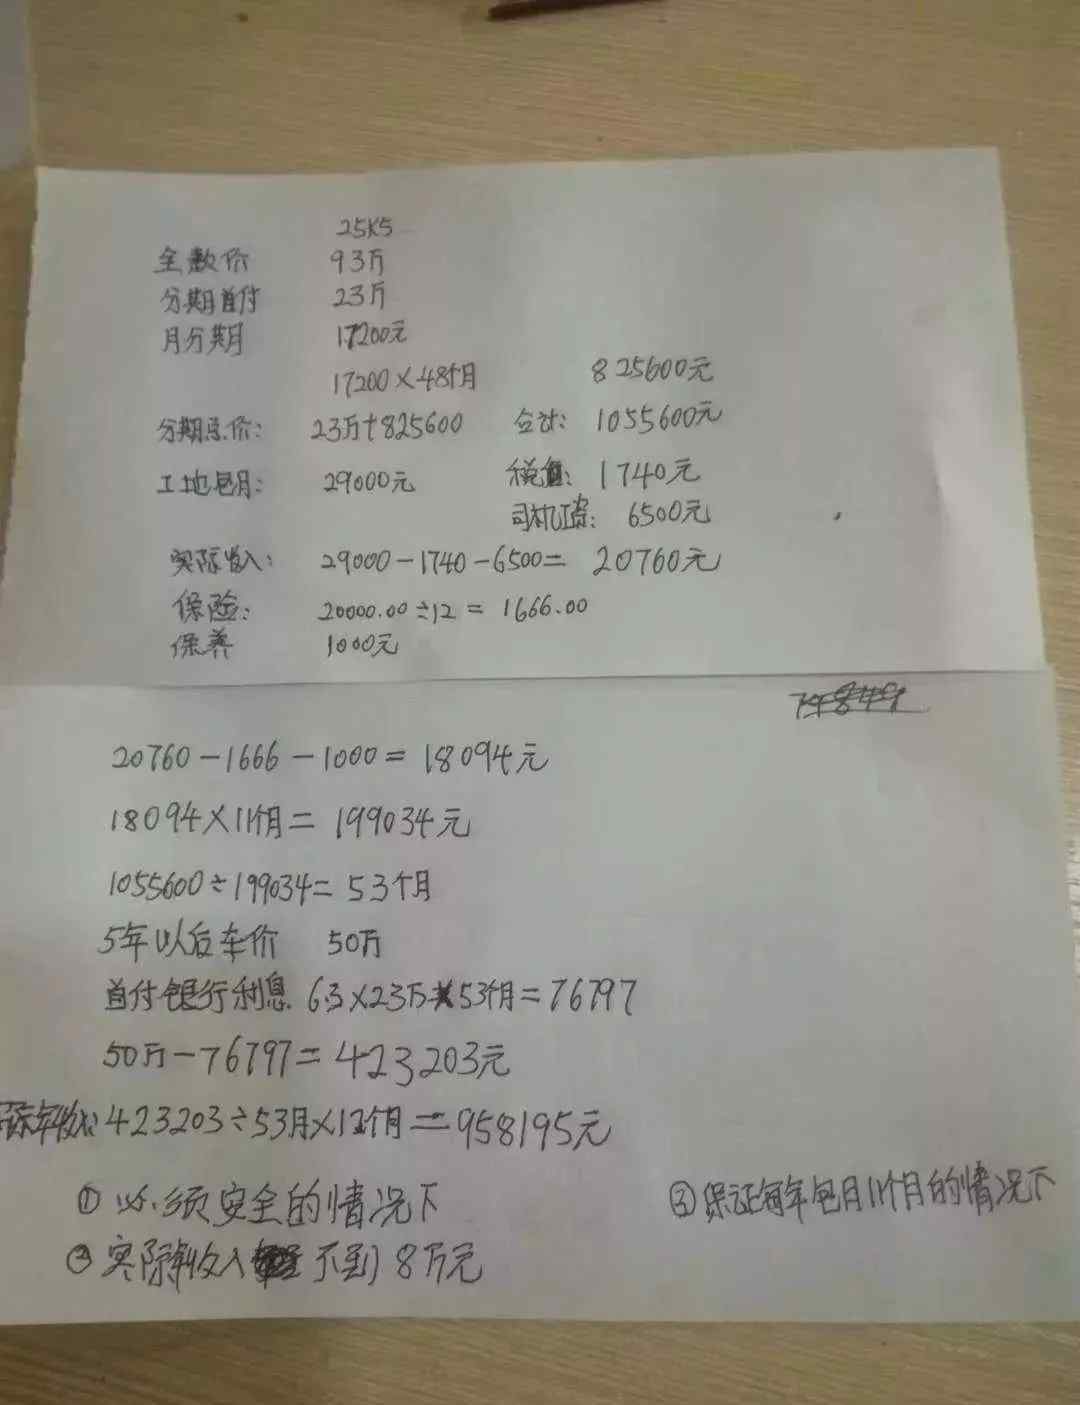 25K5
全款价 93万
分期首付 23万
月分期 17200元
17200×48个月 825600元
分期总价: 23万+825600 合计: 1055600元
工地包月: 29000元 税: 1740元
司机工资: 6500元
实际收入: 29000-1740-6500= 20760元
保险: 20000.00÷12 = 1666.00
保养 1000元
20760-1666-1000= 18094元
18094×11个月= 199034元
1055600÷199034= 53个月
5年以后车价 50万
首付银行利息 6.3×23万×53个月=76797
50万-76797=423203元
际年收入: 423203÷53月×12个月=958195元
①必须安全的情况下 ②保证每年包月11个月的情况下
③实际年收入 不到8万元